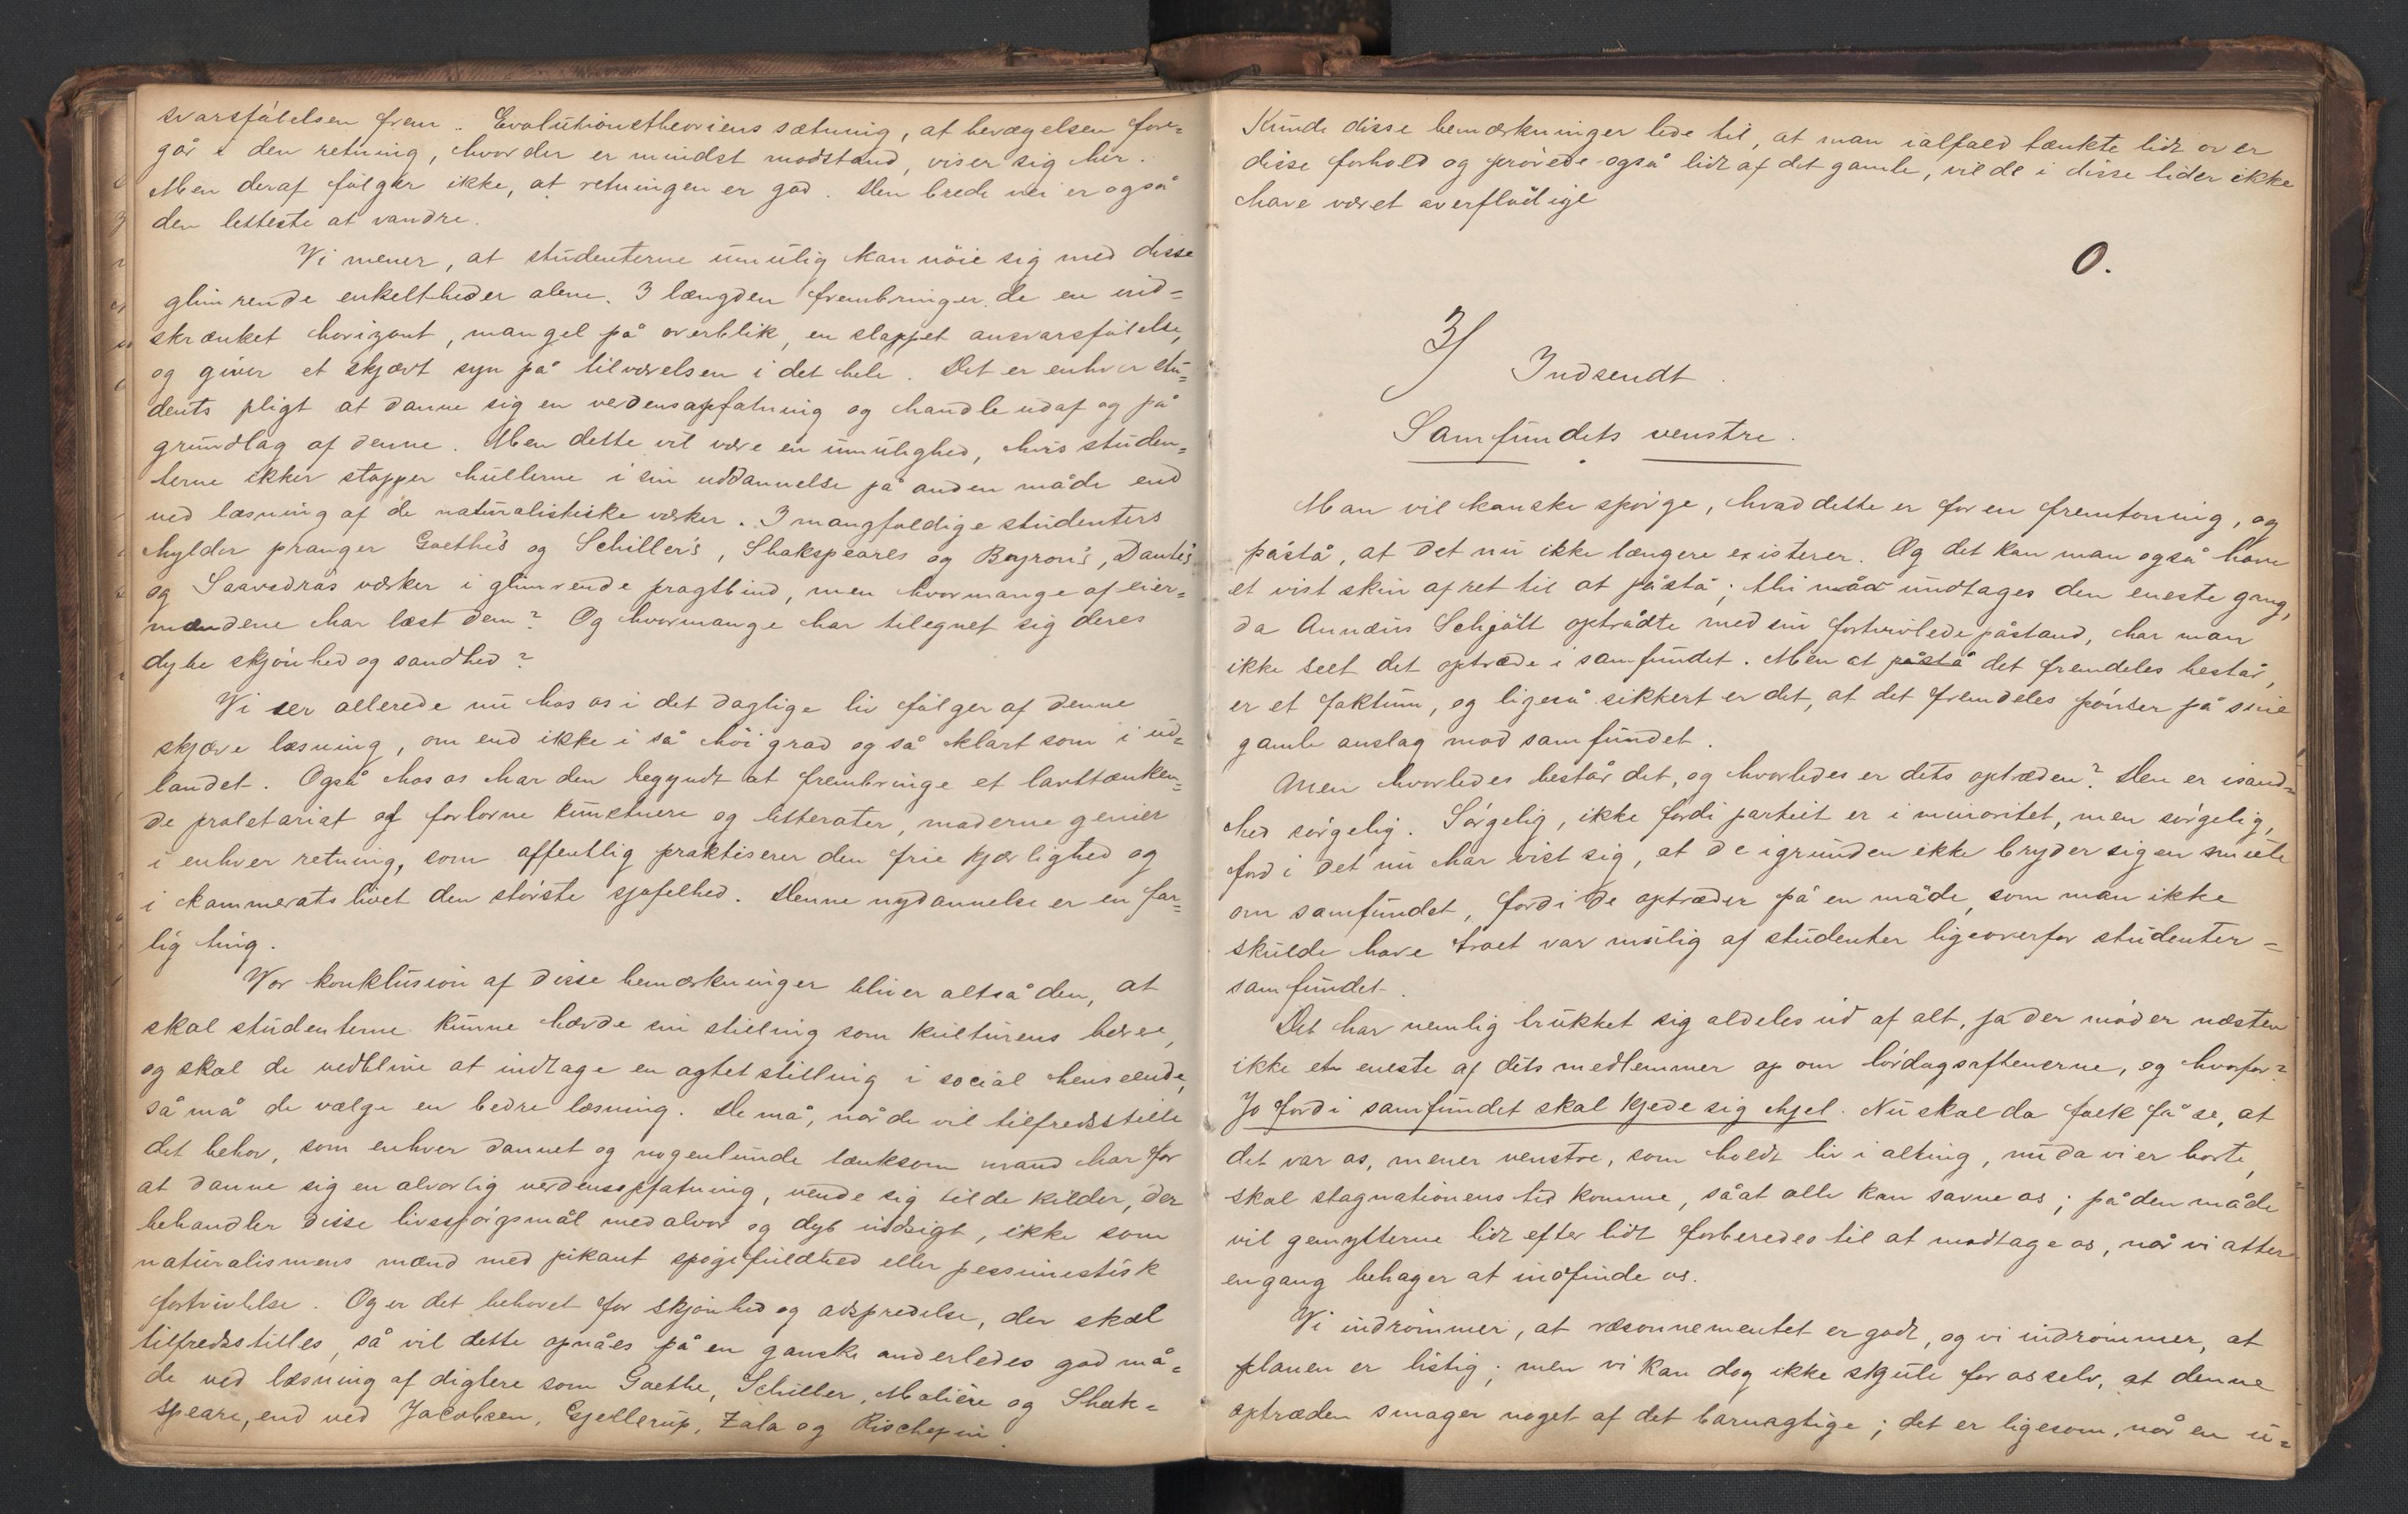 svarsfølelsen frem. Evolutionstheoriens sætning, at bevægelsen fore=
går i den retning, hvor der er mindst modstand, viser sig her.
Men deraf følger ikke, at retningen er god. Den brede vei er også
den letteste at vandre.
Vi mener, at studenterne umulig kan nöie sig med disse
glimrende enkeltheder alene. I længden frembringer de en ind=
skrænket horizont, mangel på overblik, en slappet ansvarsfølelse,
og giver et skjævt syn på tilværelsen i det hele. Det er enhver stu=
dents pligt at danne sig en verdensopfatning og handle udaf og på
grundlag af denne. Men dette vil være en umulighed, hvis studen=
terne ikker stopper hullerne i sin uddannelse på anden måde end
ved læsning af de naturalistiske værker. I mangfoldige studenters
hylder pranger Goethe's og Schiller's, Shakspeares og Byron's, Dante's
og Saavedras værker i glimrende pragtbind, men hvormange af eier=
mændene har læst dem? Og hvormange har tilegnet sig deres
dybe skjönhed og sandhed?
Vi ser allerede nu hos os i det daglige liv følger af denne
skjæve læsning, om end ikke i så höi grad og så klart som i ud=
landet. Også hos os har den begyndt at frembringe et lavttænken=
de proletariat af forlorne kunstnere og litterater, moderne genier
i enhver retning, som offentlig praktiserer den frie kjærlighed og
i kammeratslivet den störste sjofelhed. Denne nydannelse er en far=
lig ting.
Vor konklusion af disse bemærkninger bliver altså den, at
skal studenterne kunne hævde sin stilling som kulturens bærere,
og skal de vedblive at indtage en agtet stilling i social henseende,
så må de vælge en bedre læsning. De må, når de vil tilfredsstille
det behov, som enhver dannet og nogenlunde tænksom mand har for
at danne sig en alvorlig verdensopfatning, vende sig til de kilder, der
behandler disse livsspörgsmål med alvor og dyb indsigt, ikke som
naturalismens mænd med pikant spögefuldhed eller pessimistisk
fortvivlelse. Og er det behovet for skjönhed og adspredelse, der skal
tilfredsstilles, så vil dette opnåes på en ganske anderledes god må=
de ved læsning af digtere som Goethe, Schiller, Molière og Shak=
speare, end ved Jacobsen, Gjellerup, Zola og Richepin.
Kunde disse bemærkninger lede til, at man ialfald tænkte lidt over
disse forhold og prövede også lidt af det gamle, vil de i disse tider ikke
have været overflødige
O.
3/
Indsendt.
Samfundets venstre.
Man vil kanske spörge, hvad dette er for en fremtoning, og
påstå, at det nu ikke længere existerer. Og det kan man også have
et vist skin af ret til at påstå; thi når undtages den eneste gang,
da Annæus Schjött optrådte med sin fortvivlede påstand, har man
ikke seet det optræde i samfundet. Men at påstå det fremdeles består,
er et faktum, og ligeså sikkert er det, at det fremdeles pönser på sine
gamle anslag mod samfundet.
Men hvorledes består det, og hvorledes er dets optræden? Den er isand=
hed sörgelig. Sörgelig, ikke fordi partiet er i minoritet, men sörgelig,
fordi det nu har vist sig, at de igrunden ikke bryder sig en smule
om samfundet, fordi de optræder på en måde, som man ikke
skulde have troet var mulig af studenter ligeoverfor studenter=
samfundet.
Det har nemlig trukket sig aldeles ud af alt, ja der möder næsten
ikke et eneste af dets medlemmer op om lördagsaftenerne, og hvorfor?
Jo fordi samfundet skal kjede sig ihjel. Nu skal da folk få se, at
det var os, mener venstre, som holdt liv i alting, nu da vi er borte,
skal stagnationens tid komme, såat alle kan savne os; på den måde
vil gemytterne lidt efter lidt forberedes til at modtage os, når vi atter
engang behager at indfinde os.
Vi indrömmer, at ræsonnementet er godt, og vi indrömmer, at
planen er listig; men vi kan dog ikke skjule for os selv, at denne
optræden smager noget af det barnagtige; det er ligesom, når en u=